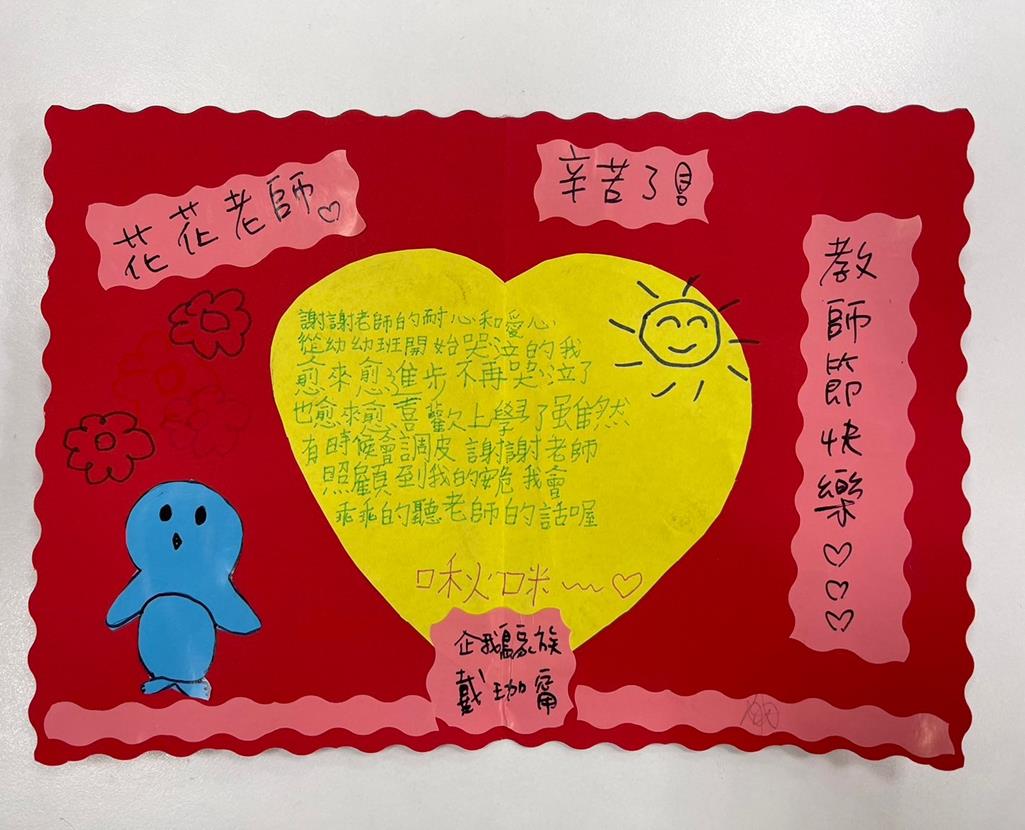 花花老師♡
辛苦了!
教師節快樂♡♡♡
謝謝老師的耐心和愛心
從幼幼班開始哭泣的我
愈來愈進步不再哭泣了
也愈來愈喜歡上學了雖然
有時候會調皮 謝謝老師
照顧到我的安危 我會
乖乖的聽老師的話喔
啾咪~♡
企我家族
戴珈甯